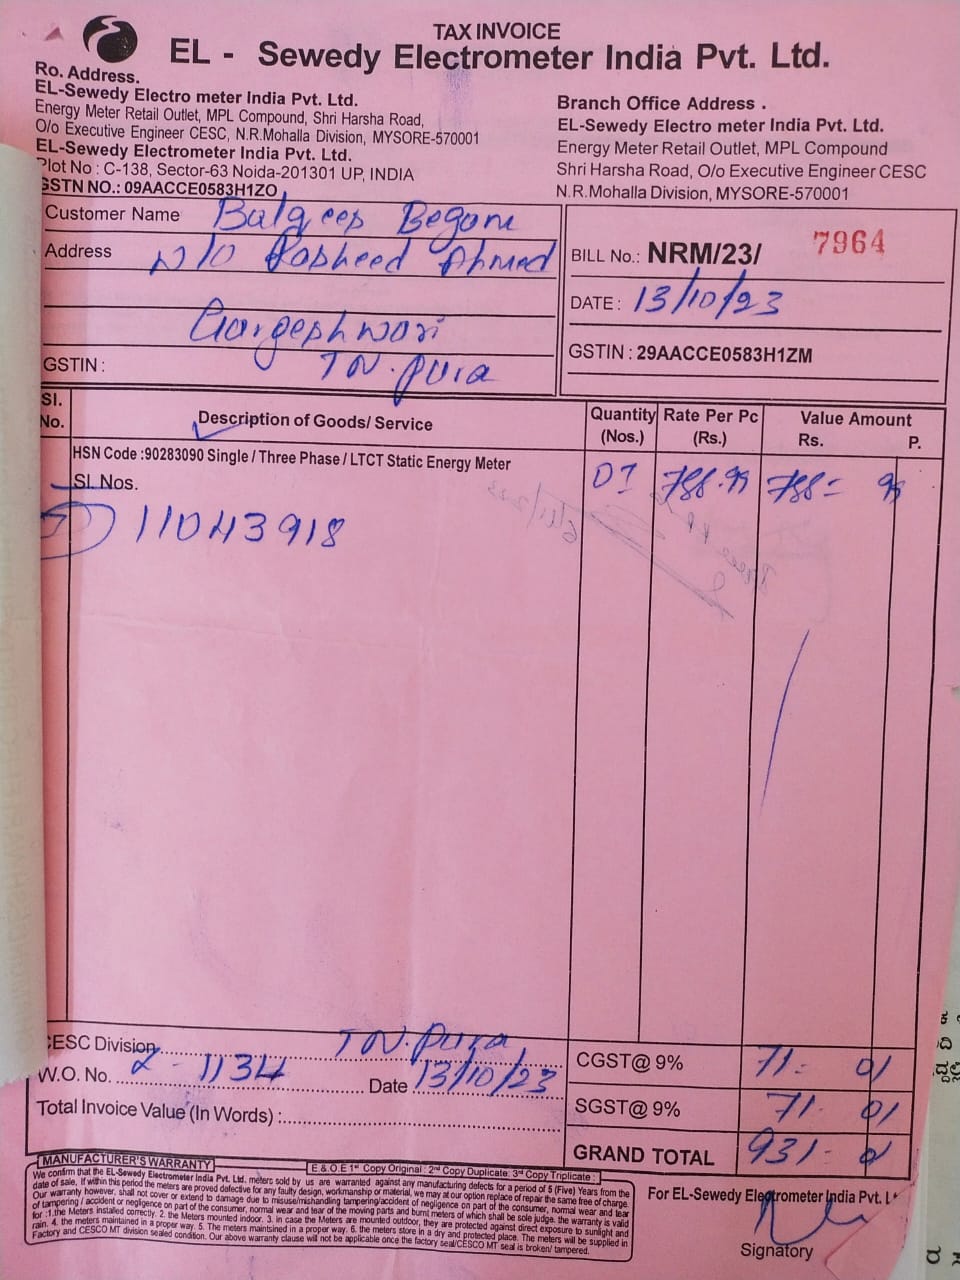 TAX INVOICE
EL - Sewedy Electrometer India Pvt. Ltd.
Ro. Address.
EL-Sewedy Electro meter India Pvt. Ltd.
Energy Meter Retail Outlet, MPL Compound, Shri Harsha Road,
O/o Executive Engineer CESC, N.R.Mohalla Division, MYSORE-570001
EL-Sewedy Electrometer India Pvt. Ltd.
Plot No : C-138, Sector-63 Noida-201301 UP, INDIA
GSTN NO.: 09AACCE0583H1ZO
Branch Office Address .
EL-Sewedy Electro meter India Pvt. Ltd.
Energy Meter Retail Outlet, MPL Compound
Shri Harsha Road, O/o Executive Engineer CESC
N.R.Mohalla Division, MYSORE-570001
Customer Name Balqees Begam
Address W/O Rasheed Ahmed
Gargeshwari
GSTIN : TN.pura
BILL No.: NRM/23/ 7964
DATE : 13/10/23
GSTIN : 29AACCE0583H1ZM
Sl. No. Description of Goods/ Service Quantity (Nos.) Rate Per Pc (Rs.) Value Amount Rs. P.
HSN Code :90283090 Single / Three Phase / LTCT Static Energy Meter
Sl. Nos. 01 788.99 788= 99
11043918
CESC Division TN.pura
W.O. No. 2-1134 Date 13/10/23
Total Invoice Value (In Words) :
CGST@ 9% 71- 01
SGST@ 9% 71- 01
GRAND TOTAL 931- 01
MANUFACTURER'S WARRANTY
E.& O.E 1st Copy Original : 2nd Copy Duplicate: 3rd Copy Triplicate :
We confirm that the EL-Sewedy Electrometer India Pvt. Ltd. meters sold by us are warranted against any manufacturing defects for a period of 5 (Five) Years from the
date of sale, If within this period the meters are proved defective for any faulty design, workmanship or material, we may at our option replace of repair the same free of charge.
Our warranty however, shall not cover or extend to damage due to misuse/mishandling tampering/accident of negligence on part of the consumer, normal wear and tear
of tampering / accident or negligence on part of the consumer, normal wear and tear of the moving parts and burnt meters of which shall be sole judge. the warranty is valid
for :1.the Meters installed correctly. 2. the Meters mounted indoor. 3. in case the Meters are mounted outdoor, they are protected against direct exposure to sunlight and
rain. 4. the meters maintained in a proper way. 5. The meters maintsined in a proper way. 6. the meters store in a dry and protected place. The meters will be supplied in
Factory and CESCO MT division sealed condition. Our above warranty clause will not be applicable once the factory seal/CESCO MT seal is broken/ tampered.
For EL-Sewedy Electrometer India Pvt. L
Signatory